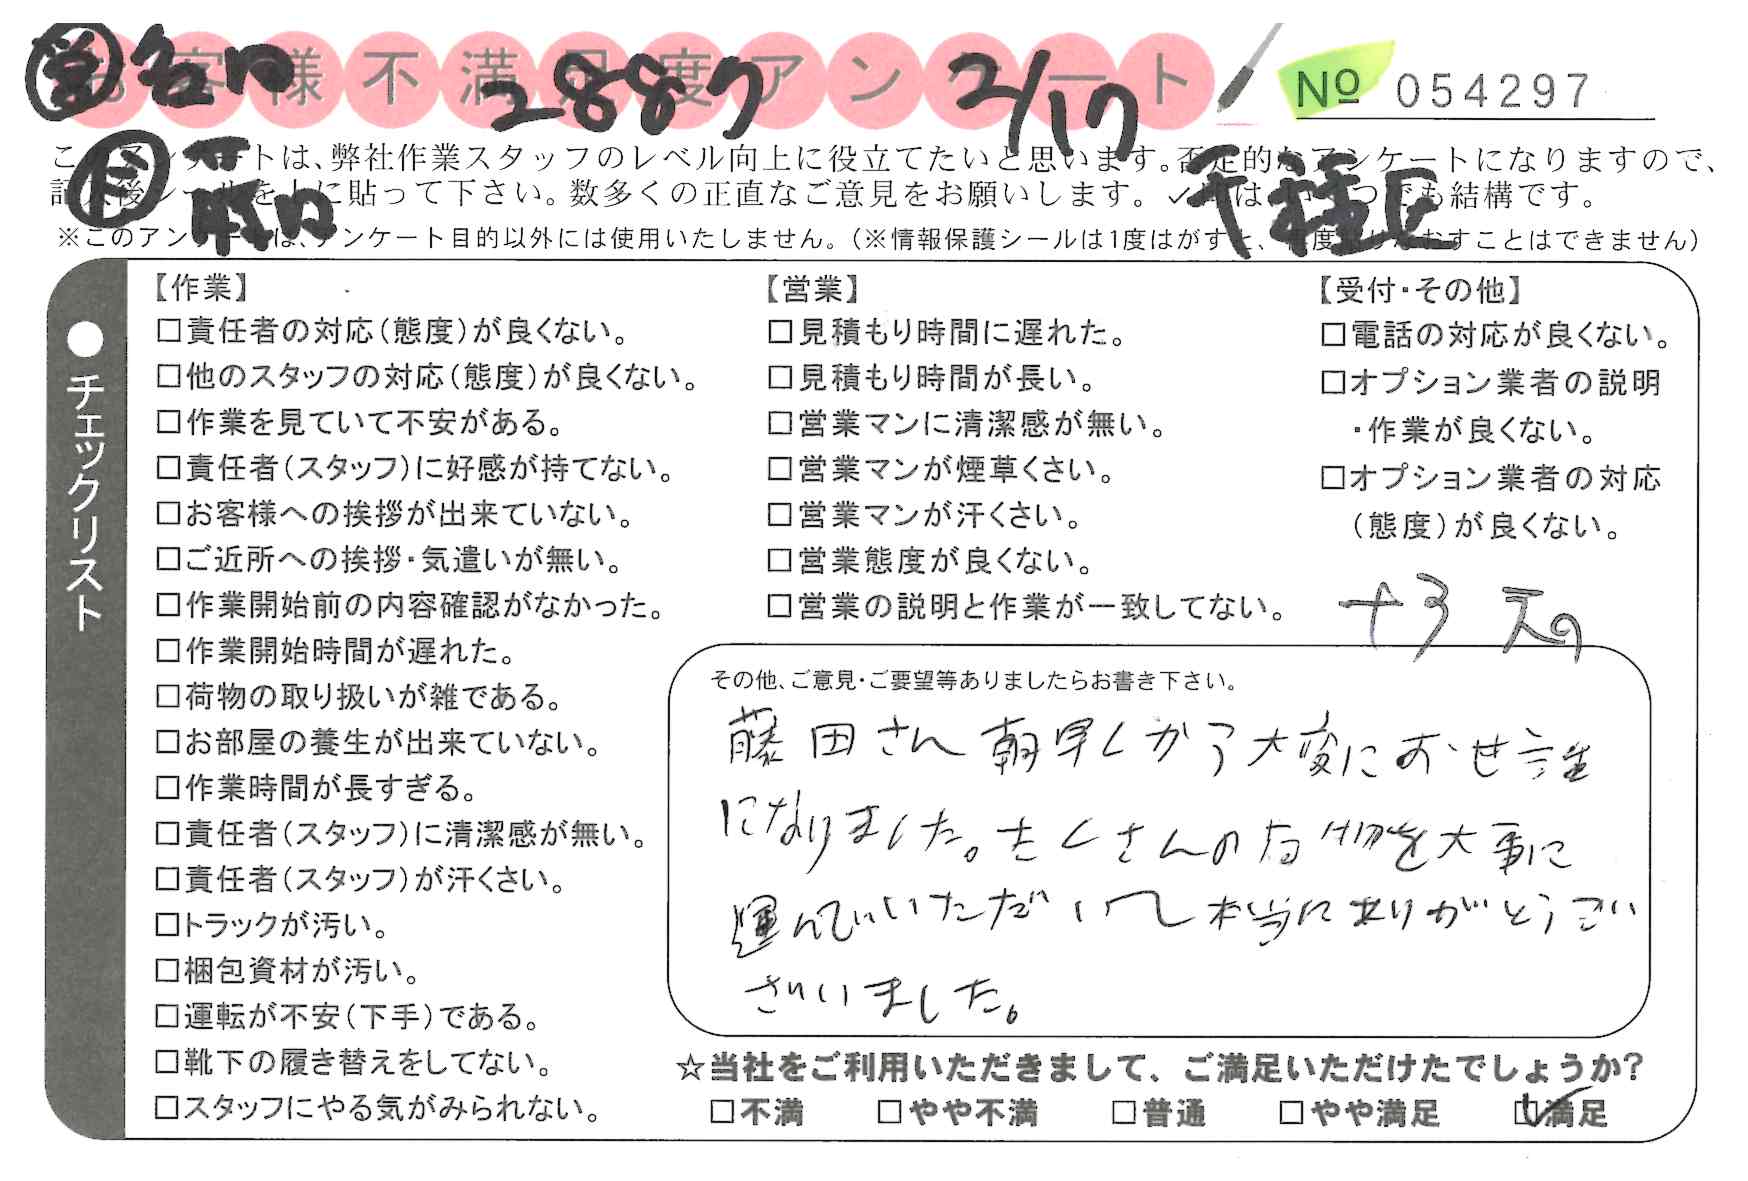 お客様不満足度アンケート
2887
2/17
№ 054297
千種区
このアンケートは、弊社作業スタッフのレベル向上に役立てたいと思います。否定的なアンケートになりますので、
記入後シールを上に貼って下さい。数多くの正直なご意見をお願いします。✓印はいくつでも結構です。
※このアンケートは、アンケート目的以外には使用いたしません。（※情報保護シールは1度はがすと、再度貼りなおすことはできません）
●チェックリスト
【作業】
□責任者の対応（態度）が良くない。
□他のスタッフの対応（態度）が良くない。
□作業を見ていて不安がある。
□責任者（スタッフ）に好感が持てない。
□お客様への挨拶が出来ていない。
□ご近所への挨拶・気遣いが無い。
□作業開始前の内容確認がなかった。
□作業開始時間が遅れた。
□荷物の取り扱いが雑である。
□お部屋の養生が出来ていない。
□作業時間が長すぎる。
□責任者（スタッフ）に清潔感が無い。
□責任者（スタッフ）が汗くさい。
□トラックが汚い。
□梱包資材が汚い。
□運転が不安（下手）である。
□靴下の履き替えをしてない。
□スタッフにやる気がみられない。
【営業】
□見積もり時間に遅れた。
□見積もり時間が長い。
□営業マンに清潔感が無い。
□営業マンが煙草くさい。
□営業マンが汗くさい。
□営業態度が良くない。
□営業の説明と作業が一致してない。
【受付・その他】
□電話の対応が良くない。
□オプション業者の説明
・作業が良くない。
□オプション業者の対応
（態度）が良くない。
その他、ご意見・ご要望等ありましたらお書き下さい。
藤田さん朝早くから大変にお世話
になりました。たくさんの荷物を大事に
運んでいただいて本当にありがとうござい
ざいました。
☆当社をご利用いただきまして、ご満足いただけたでしょうか？
□不満 □やや不満 □普通 □やや満足 ☑満足